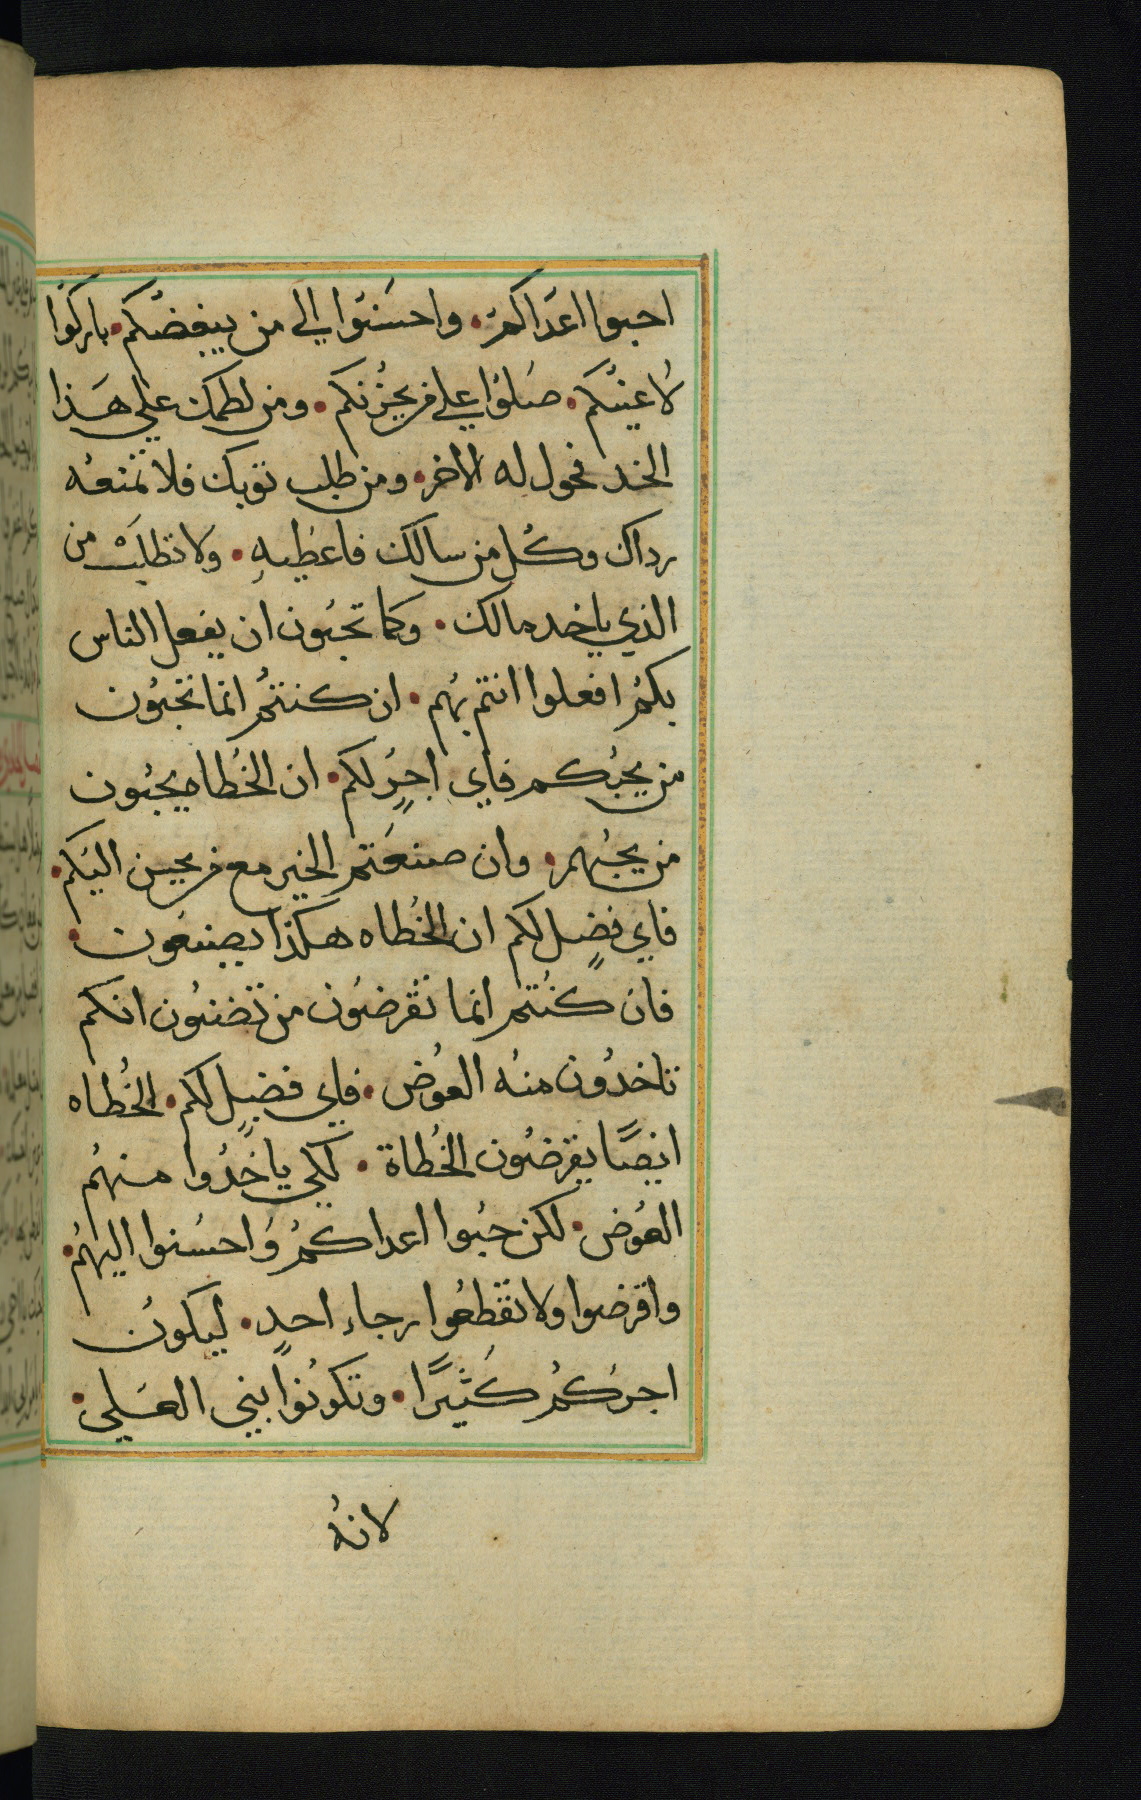 احبوا اعداكم. واحسنوا الي من يبغضكم. باركوا
لاعنيكم. صلوا علي من يحزنكم. ومن لطمك علي هذا
الخد فحول له الاخر. ومن طلب توبك فلا تمنعه
رداك وكل من سالك فاعطيه. ولا تطلب من
الذي ياخد مالك. وكما تحبون ان يفعل الناس
بكم افعلوا انتم بهم. ان كنتم انما تحبون
من يحبكم فاي اجرٍ لكم. ان الخُطاه يحبون
من يحبهم. وان صنعتم الخير مع من يحسن اليكم.
فاي فضلٍ لكم ان الخُطاه هكذا يصنعون.
فان كنتم انما تقرضون من تضنون انكم
تاخدون منه العوض. فاي فضلٍ لكم. الخُطاه
ايضًا يقرضون الخُطاة. لكي ياخدوا منهم
العوض. لكن حبوا اعداكم واحسنوا اليهم.
واقرضوا ولا تقطعوا رجاء احدٍ. ليكون
اجركم كثيرًا. وتكونوا بني العلي.
لانهُ